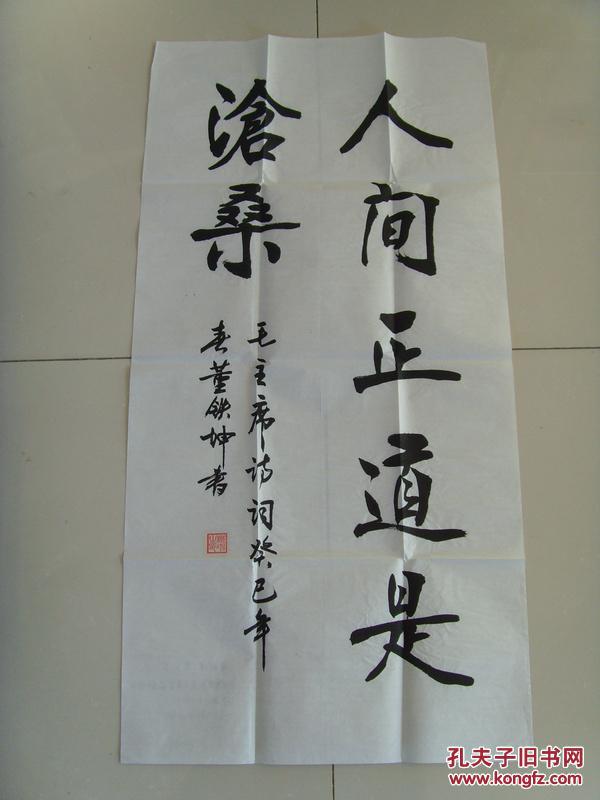 人间正道是
滄桑
毛主席诗词癸巳年
春董铁坤书
孔夫子旧书网
www.kongfz.com